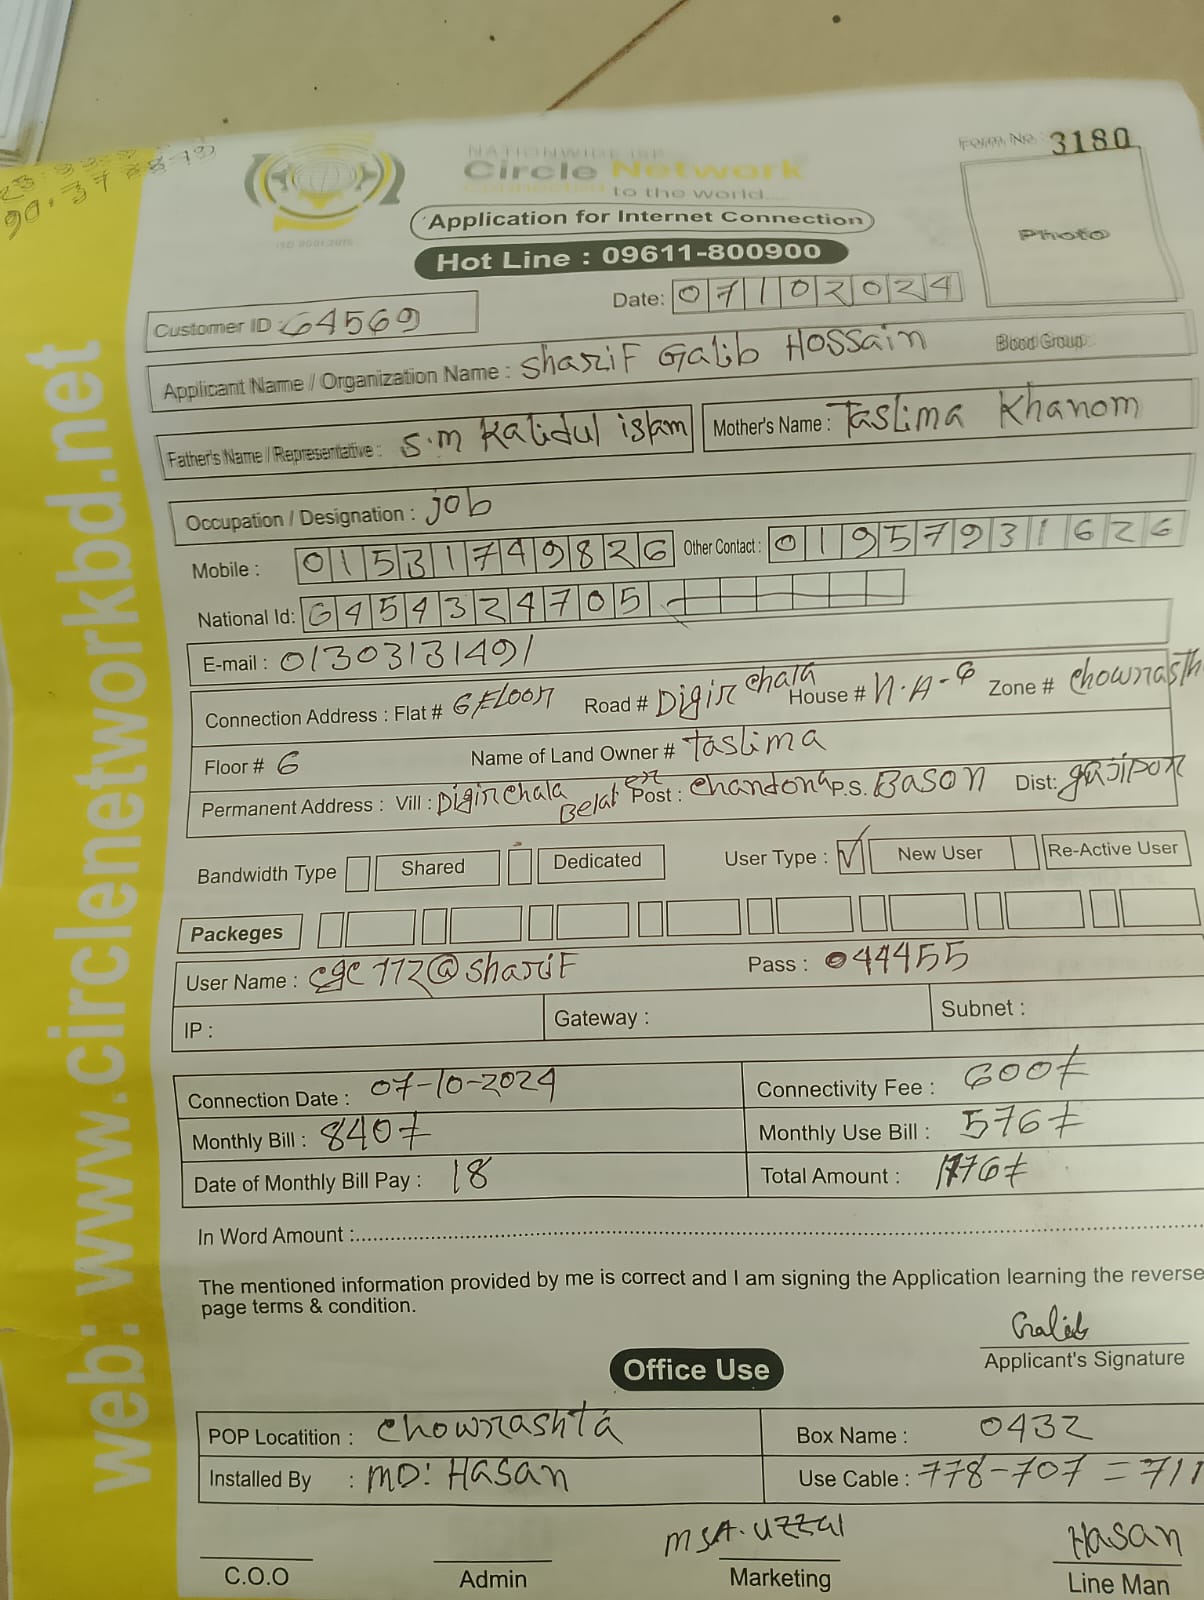 NATIONWIDE ISP
Circle Network
Connected to the world....
ISO 9001:2015
Form No: 3180
Photo
Application for Internet Connection
Hot Line : 09611-800900
Date: 07102024
Customer ID : 64569
Applicant Name / Organization Name : Sharif Galib Hossain Blood Group:
Father's Name / Representative : S.M Kalidul islam Mother's Name : Taslima Khanom
Occupation / Designation : job
Mobile : 01531749826 Other Contact : 01957931626
National Id: 6454324705
E-mail : 01303131491
Connection Address : Flat # 6 FLOOR Road # Digir chala House # N.A-6 Zone # Chowrasth
Floor # 6 Name of Land Owner # Taslima
Permanent Address : Vill : Digir chala Post : Chandona P.S. BASON Dist: gajipor
Bandwidth Type Shared Dedicated User Type : ✓ New User Re-Active User
Packeges
User Name : cgc772@sharif Pass : 044455
IP : Gateway : Subnet :
Connection Date : 07-10-2024 Connectivity Fee : 600/=
Monthly Bill : 840/= Monthly Use Bill : 576/=
Date of Monthly Bill Pay : 18 Total Amount : 1176/=
In Word Amount :
The mentioned information provided by me is correct and I am signing the Application learning the reverse
page terms & condition.
Galib
Applicant's Signature
Office Use
POP Locatition : Chowrashta Box Name : 0432
Installed By : MD: Hasan Use Cable : 778-707 = 711
MSA. UZZal Hasan
C.O.O Admin Marketing Line Man
web: www.circlenetworkbd.net